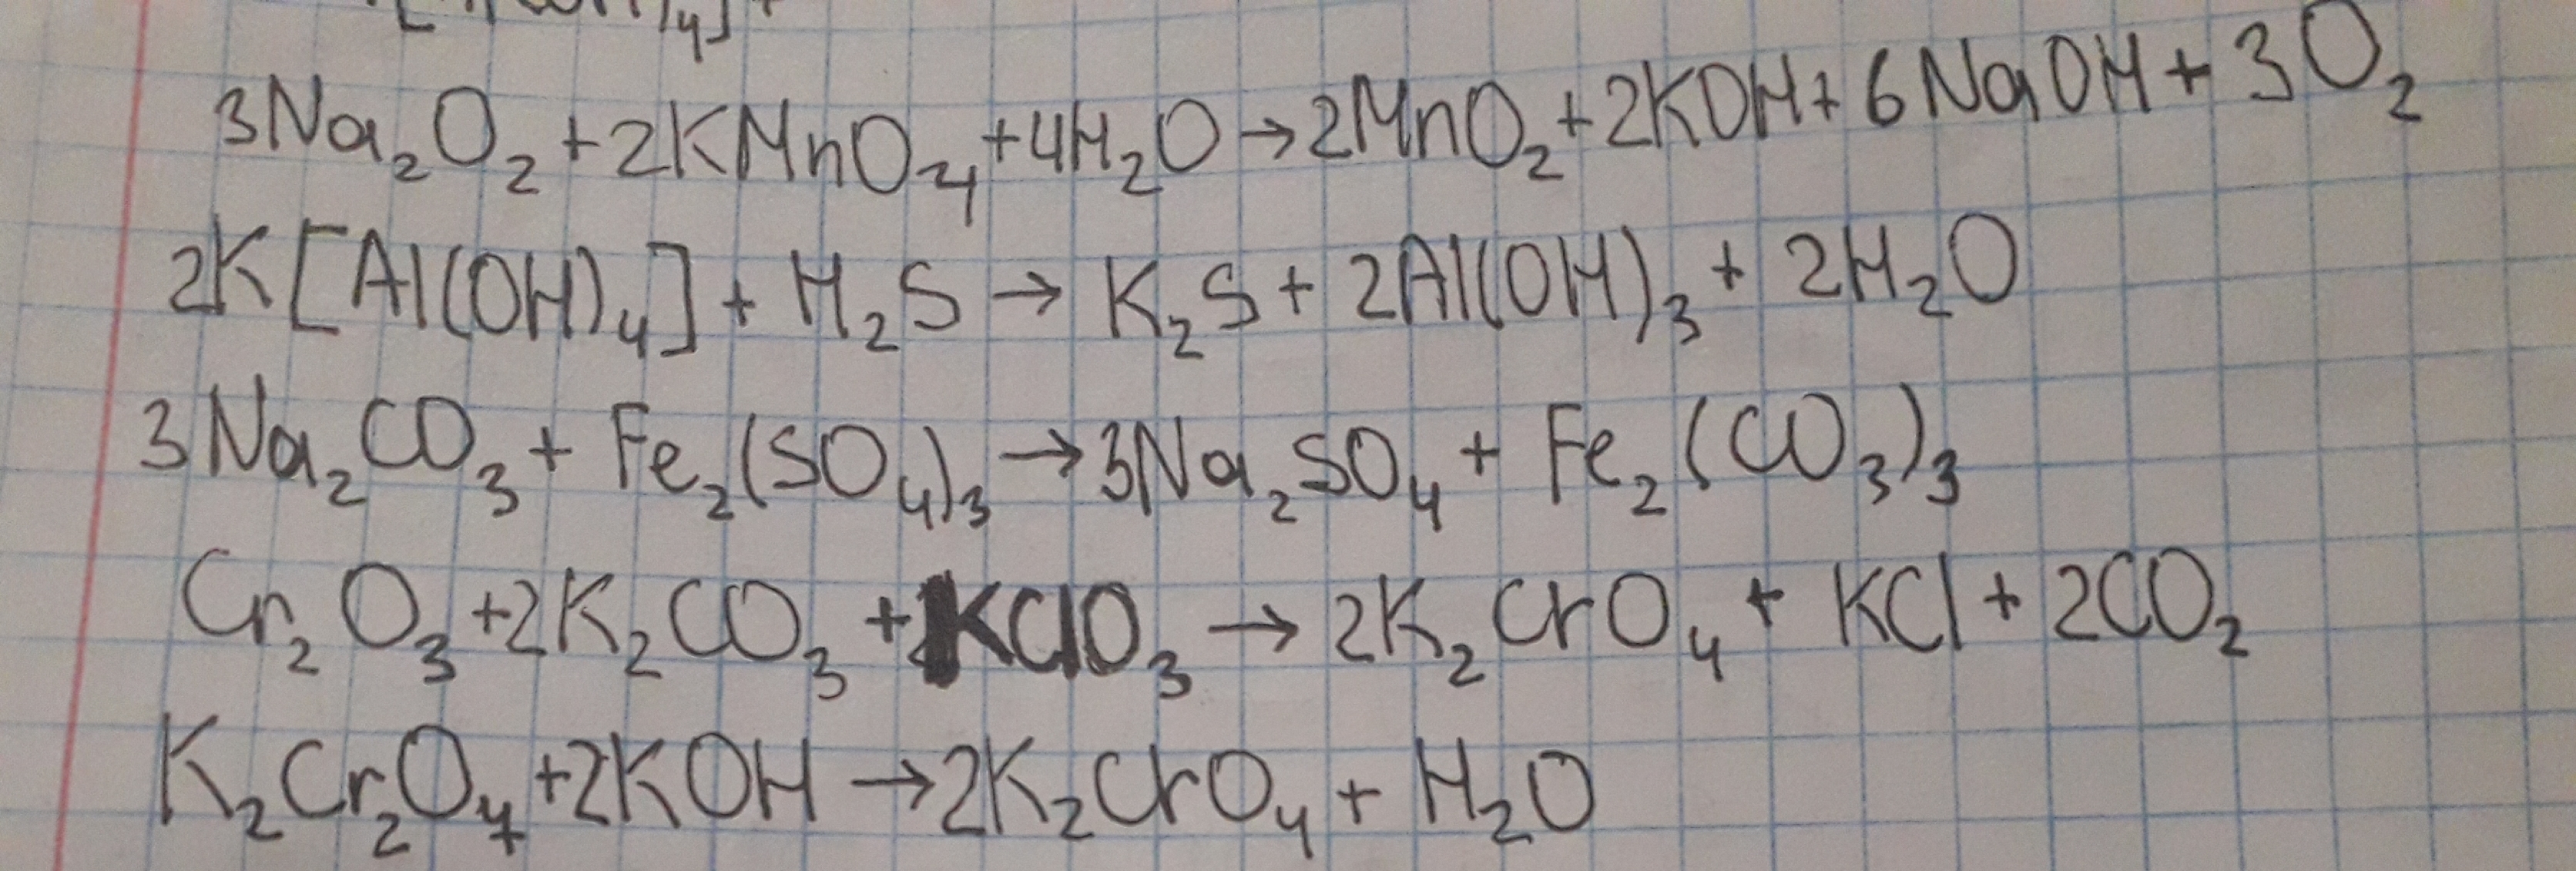 3Na₂O₂ + 2KMnO₄ + 4H₂O → 2MnO₂ + 2KOH + 6NaOH + 3O₂
2K[Al(OH)₄] + H₂S → K₂S + 2Al(OH)₃ + 2H₂O
3Na₂CO₃ + Fe₂(SO₄)₃ → 3Na₂SO₄ + Fe₂(CO₃)₃
Cr₂O₃ + 2K₂CO₃ + KClO₃ → 2K₂CrO₄ + KCl + 2CO₂
K₂Cr₂O₇ + 2KOH → 2K₂CrO₄ + H₂O